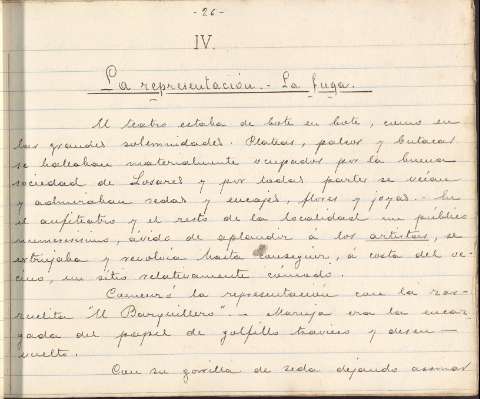 - 26 -
IV.
La representación.- La fuga.
El teatro estaba de bote en bote, como en
las grandes solemnidades. Plateas, palcos y butacas
se hallaban materialmente ocupados por la buena
sociedad de Losares y por todas partes se veían
y admiraban sedas y encajes, flores y joyas.- En
el anfiteatro y el resto de la localidad un público
numerosísimo, ávido de aplaudir á los artistas, se
estrujaba y revolvía hasta conseguir, á costa del ve-
cino, un sitio relativamente cómodo.
Comenzó la representación con la zar-
zuelita "El Barquillero".- Maruja era la encar-
gada del papel de golfillo travieso y desen-
vuelto.
Con su gorrilla de seda dejando asomar